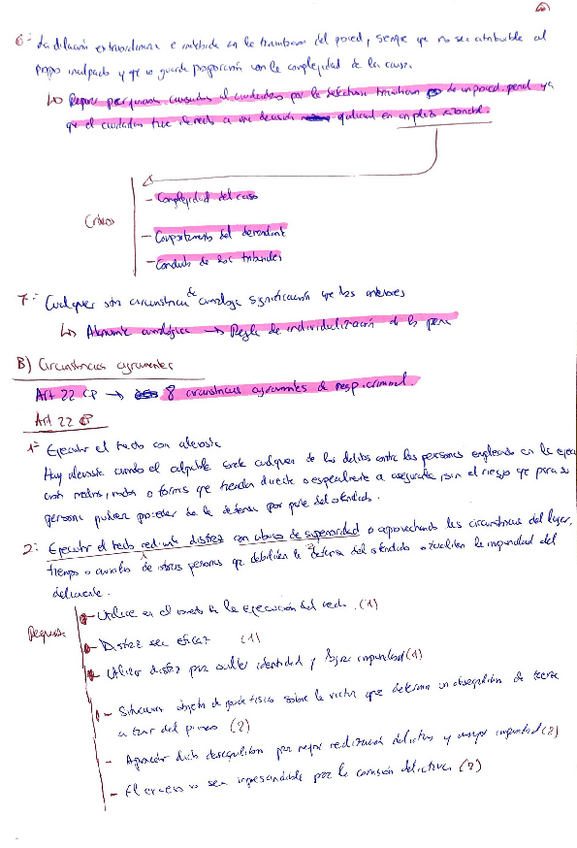 6ª La dilación extraordinaria e indebida en la tramitación del proced, siempre que no sea atribuible al
propio inculpado y que no guarde proporción con la complejidad de la causa.
↳ Reparar perjuicios causados al ciudadano por la defectuosa tramitación de un proced. penal ya
que el ciudadano tiene derecho a una decisión judicial en un plazo razonable.
Criterios
- Complejidad del caso
- Comportamiento del demandante
- Conducta de los tribunales
7ª Cualquier otra circunstancia de análoga significación que las anteriores
↳ Atenuante analógica → Regla de individualización de la pena
B) Circunstancias agravantes
Art 22 CP → 8 circunstancias agravantes de resp. criminal.
Art 22 CP
1ª Ejecutar el hecho con alevosía
Hay alevosía cuando el culpable comete cualquiera de los delitos contra las personas empleando en la ejecu
ción medios, modos o formas que tiendan directa o especialmente a asegurarla, sin el riesgo que para su
persona pudiera proceder de la defensa por parte del ofendido.
2ª Ejecutar el hecho mediante disfraz con abuso de superioridad o aprovechando las circunstancias del lugar,
tiempo o auxilio de otras personas que debiliten la defensa del ofendido o faciliten la impunidad del
delincuente.
Requisitos
- Utilice en el momento de la ejecución del hecho. (1)
- Disfraz sea eficaz (1)
- Utilizar disfraz para ocultar identidad y lograr impunidad (1)
- Situación objetiva de poder físico sobre la víctima que determina un desequilibrio de fuerza
a favor del primero (2)
- Aprovechar dicho desequilibrio para mejor realización delictiva y mayor impunidad (2)
- El exceso no sea imprescindible para la comisión delictiva (2)